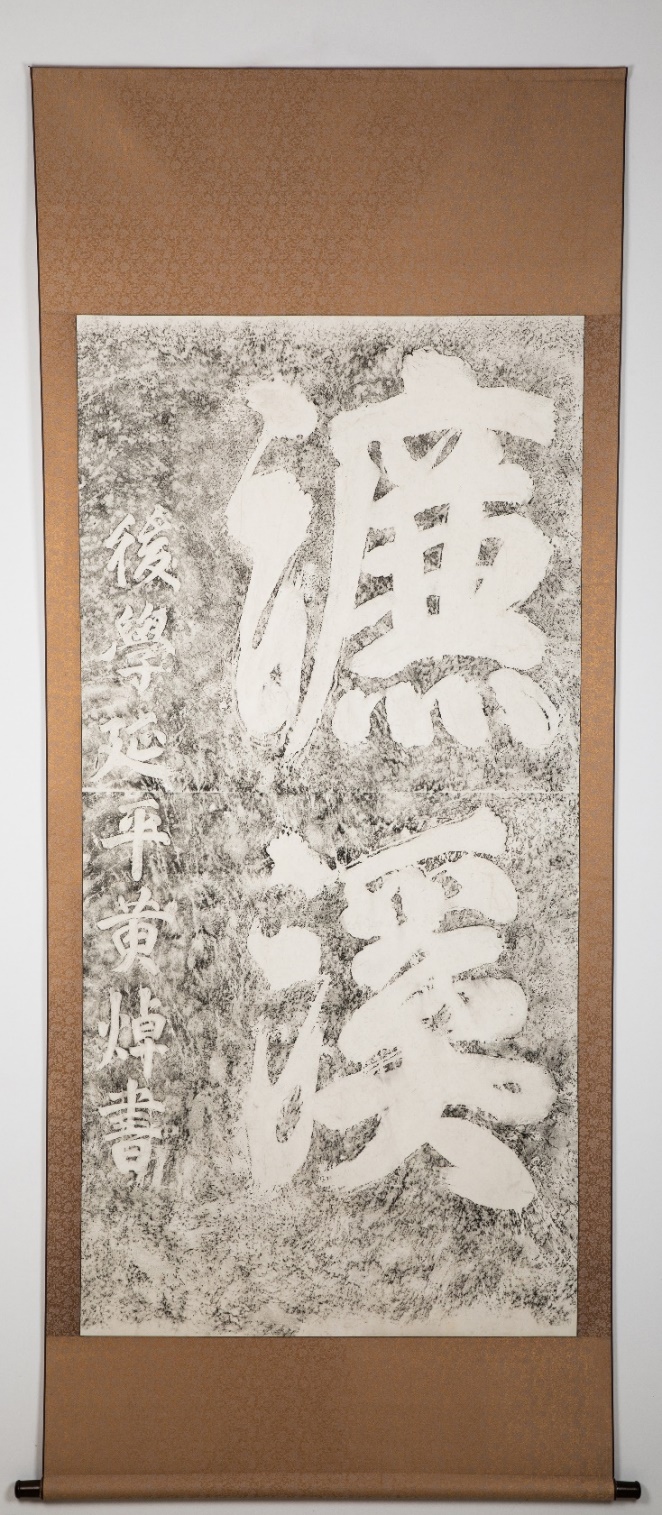 濂溪
後學延平黄焯書